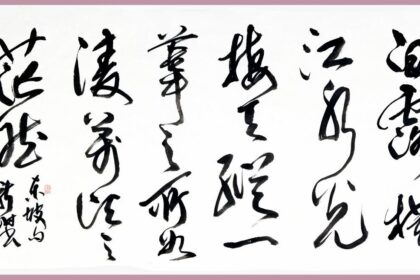 白露橫
江水光
接天縱一
葦之所如
凌萬頃之
茫然
東坡句